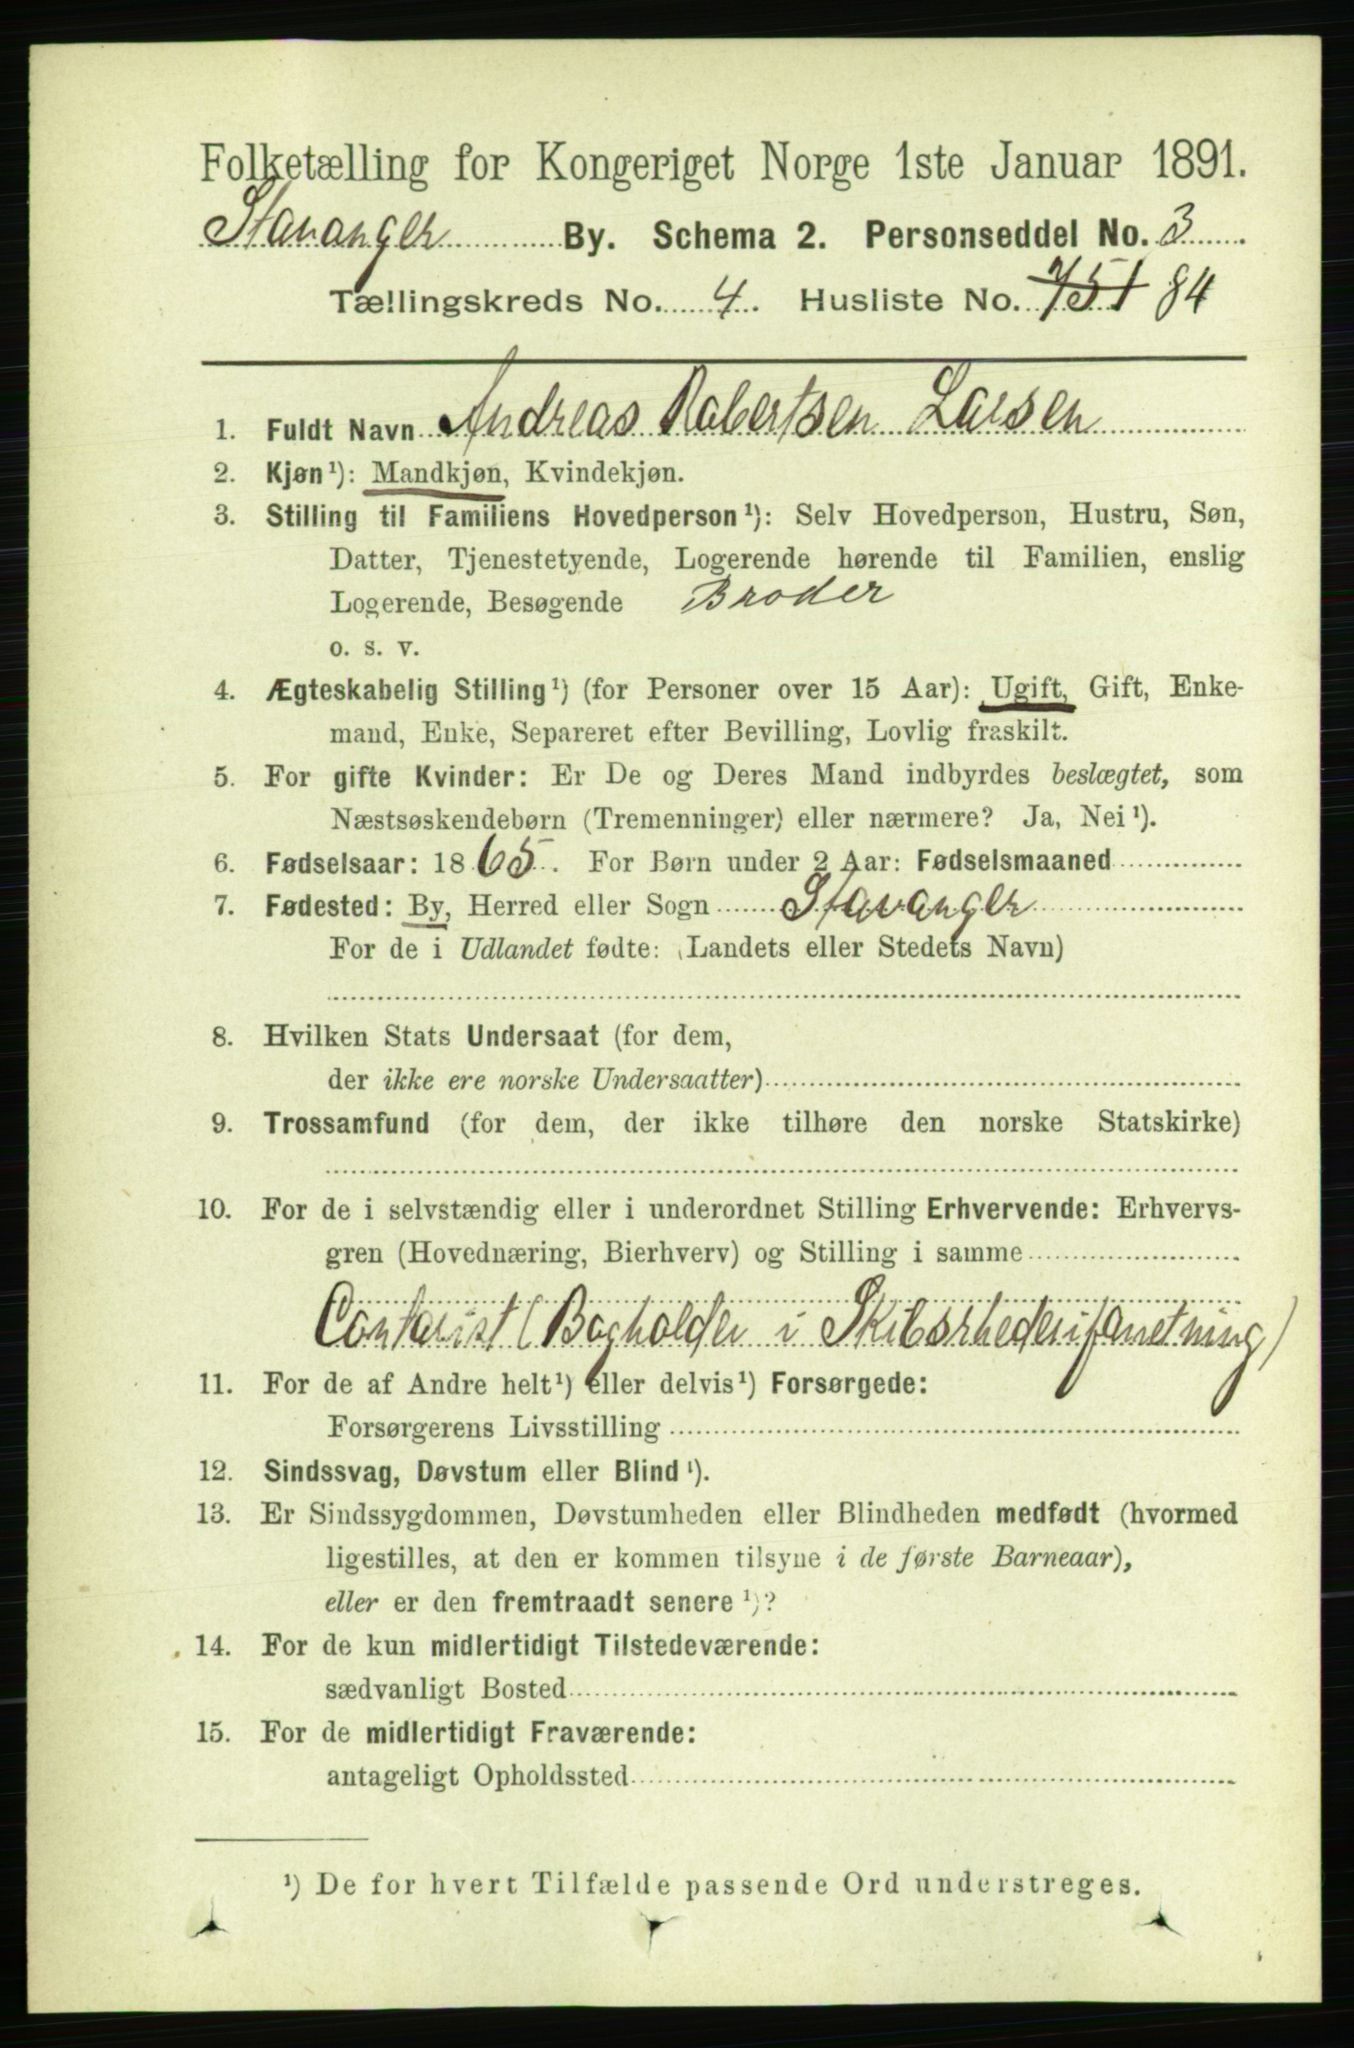 Folketælling for Kongeriget Norge 1ste Januar 1891.
Stavanger By. Schema 2. Personseddel No. 3
Tællingskreds No. 4. Husliste No. 751 84
1. Fuldt Navn Andreas Robertsen Larsen
2. Kjøn ¹): Mandkjøn, Kvindekjøn.
3. Stilling til Familiens Hovedperson ¹): Selv Hovedperson, Hustru, Søn,
Datter, Tjenestetyende, Logerende hørende til Familien, enslig
Logerende, Besøgende Broder
o. s. v.
4. Ægteskabelig Stilling ¹) (for Personer over 15 Aar): Ugift, Gift, Enke-
mand, Enke, Separeret efter Bevilling, Lovlig fraskilt.
5. For gifte Kvinder: Er De og Deres Mand indbyrdes beslægtet, som
Næstsøskendebørn (Tremenninger) eller nærmere? Ja, Nei ¹).
6. Fødselsaar: 1865. For Børn under 2 Aar: Fødselsmaaned
7. Fødested: By, Herred eller Sogn Stavanger
For de i Udlandet fødte: (Landets eller Stedets Navn)
8. Hvilken Stats Undersaat (for dem,
der ikke ere norske Undersaatter)
9. Trossamfund (for dem, der ikke tilhøre den norske Statskirke)
10. For de i selvstændig eller i underordnet Stilling Erhvervende: Erhvervs-
gren (Hovednæring, Bierhverv) og Stilling i samme
Contorist (Bogholder i Skibsrhederiforretning)
11. For de af Andre helt ¹) eller delvis ¹) Forsørgede:
Forsørgerens Livsstilling
12. Sindssvag, Døvstum eller Blind ¹).
13. Er Sindssygdommen, Døvstumheden eller Blindheden medfødt (hvormed
ligestilles, at den er kommen tilsyne i de første Barneaar),
eller er den fremtraadt senere ¹)?
14. For de kun midlertidigt Tilstedeværende:
sædvanligt Bosted
15. For de midlertidigt Fraværende:
antageligt Opholdssted
¹) De for hvert Tilfælde passende Ord understreges.